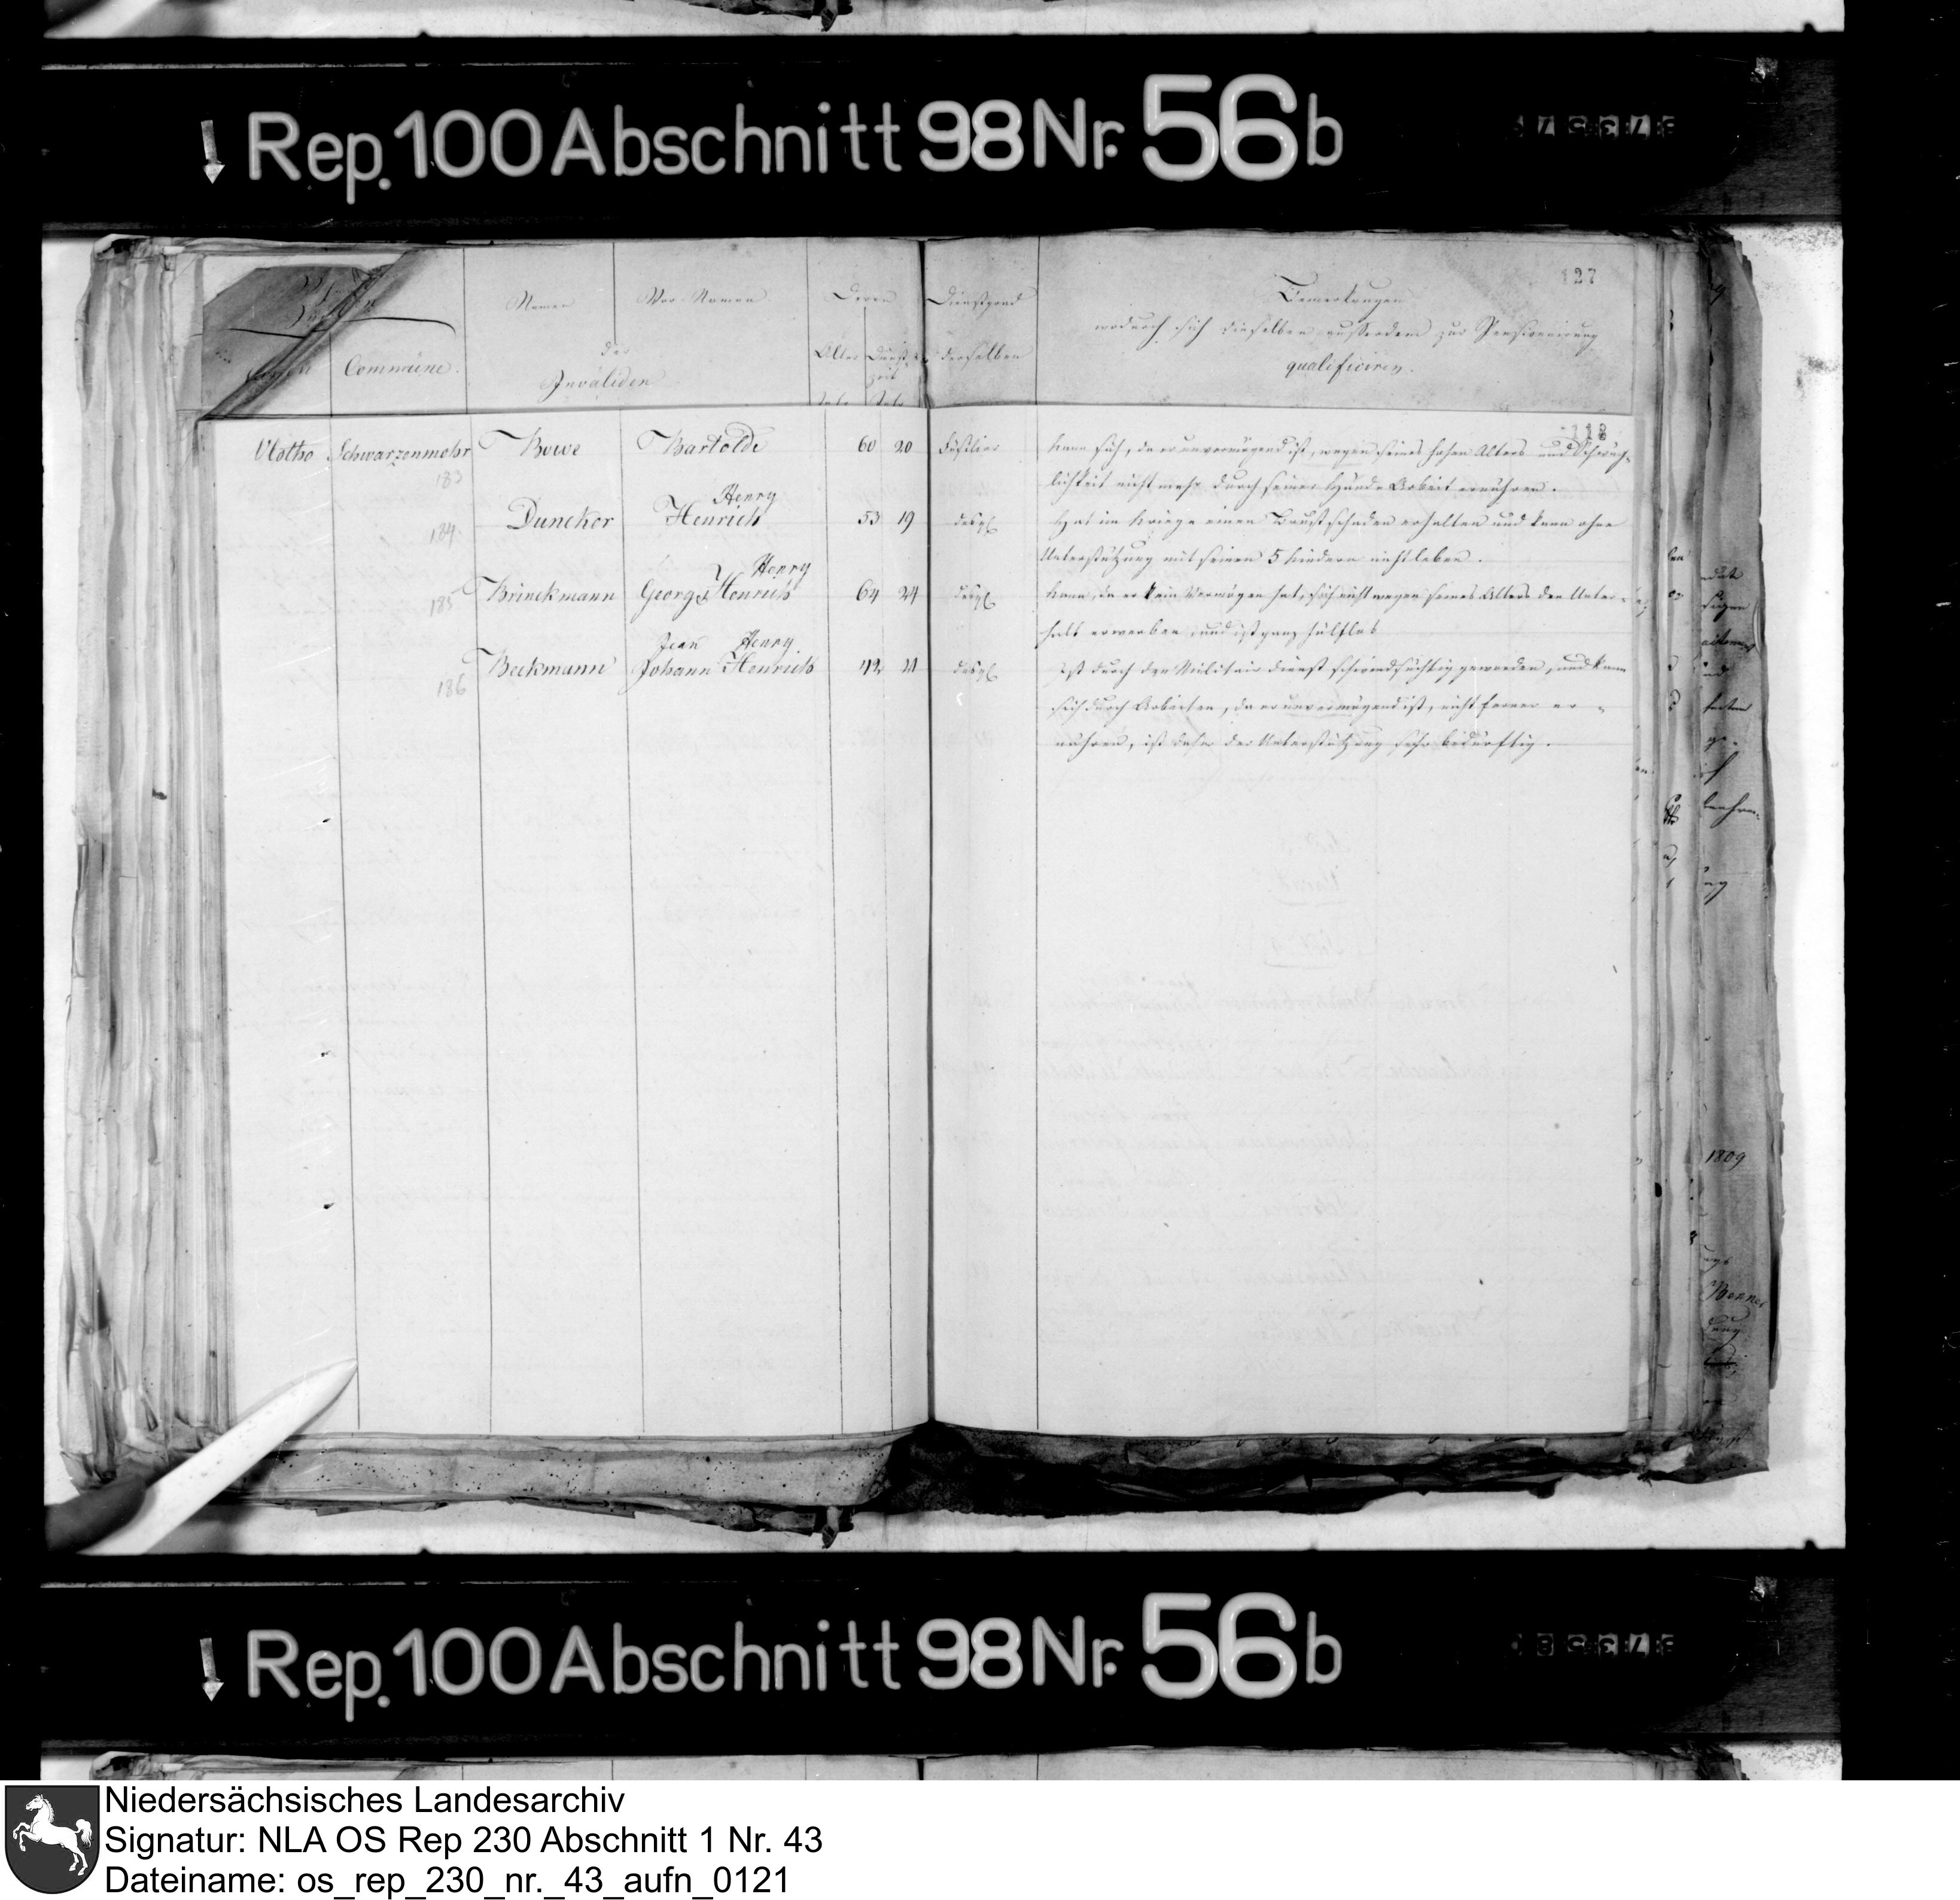 Rep. 100 Abschnitt 98 Nr. 56b
127
Namen Vor-Namen Deren Dienstgrad Bemerkungen
wodurch sich dieselben ausserdem zur Pensionirung
Commüne. der Alter Dienst- derselben qualificiren.
Invaliden zeit
118
Vlotho Schwarzenmohr Buwe Bartolde 60 20 Füsilier kann sich, da er unvermögend ist, wegen seines hohen Alters und Schwäch-
183 lichkeit nicht mehr durch seiner Hände Arbeit ernähren.
Henry
184 Duncker Henrich 53 19 desgl. Hat im Kriege einen Brustschaden erhalten und kann ohne
Unterstützung mit seinen 5 Kindern nicht leben.
Henry
185 Brinckmann Georg Henrich 64 24 desgl. kann, da er kein Vermögen hat, sich nicht wegen seines Alters den Unter-
halt erwerben, und ist ganz hülflos
Jean Henry
186 Beckmann Johann Henrich 42 21 desgl. Ist durch den Militair dienst schwindsüchtig geworden, und kann
sich durch Arbeiten, da er unvermögend ist, nicht ferner er-
nähren, ist daher der Unterstützung sehr bedürftig.
1809
Rep. 100 Abschnitt 98 Nr. 56b
Niedersächsisches Landesarchiv
Signatur: NLA OS Rep 230 Abschnitt 1 Nr. 43
Dateiname: os_rep_230_nr._43_aufn_0121